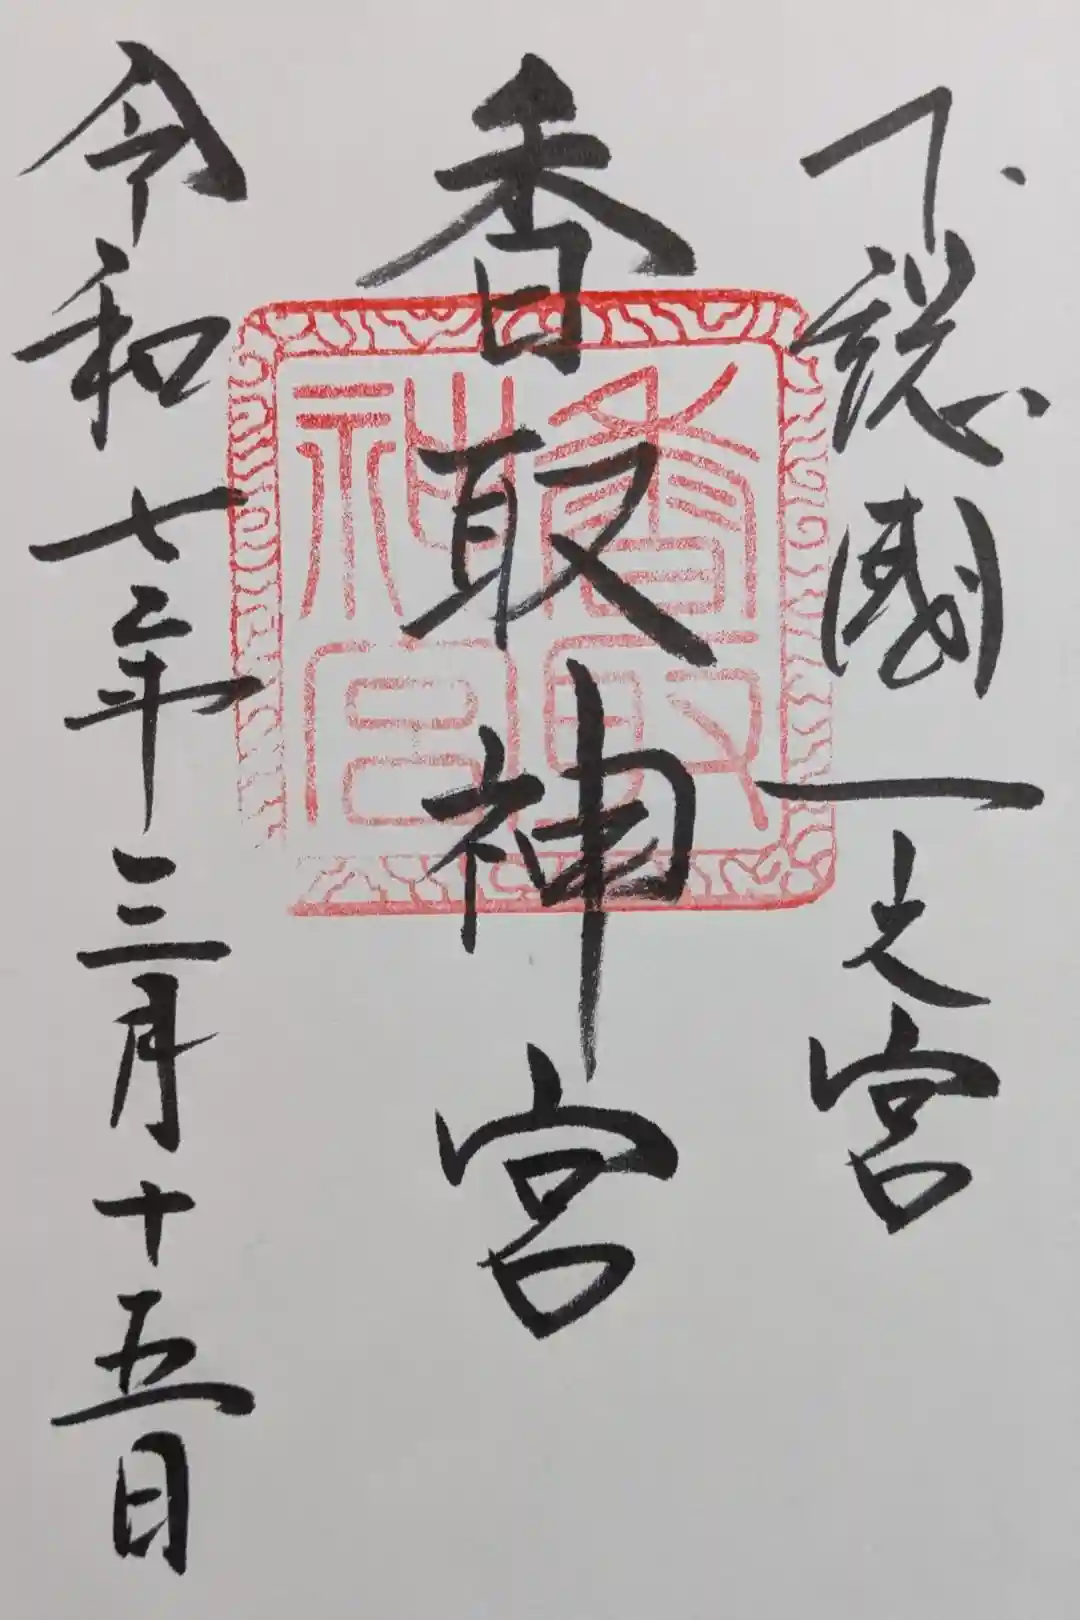 下総國一之宮
香取神宮
香取神宮
令和七年三月十五日